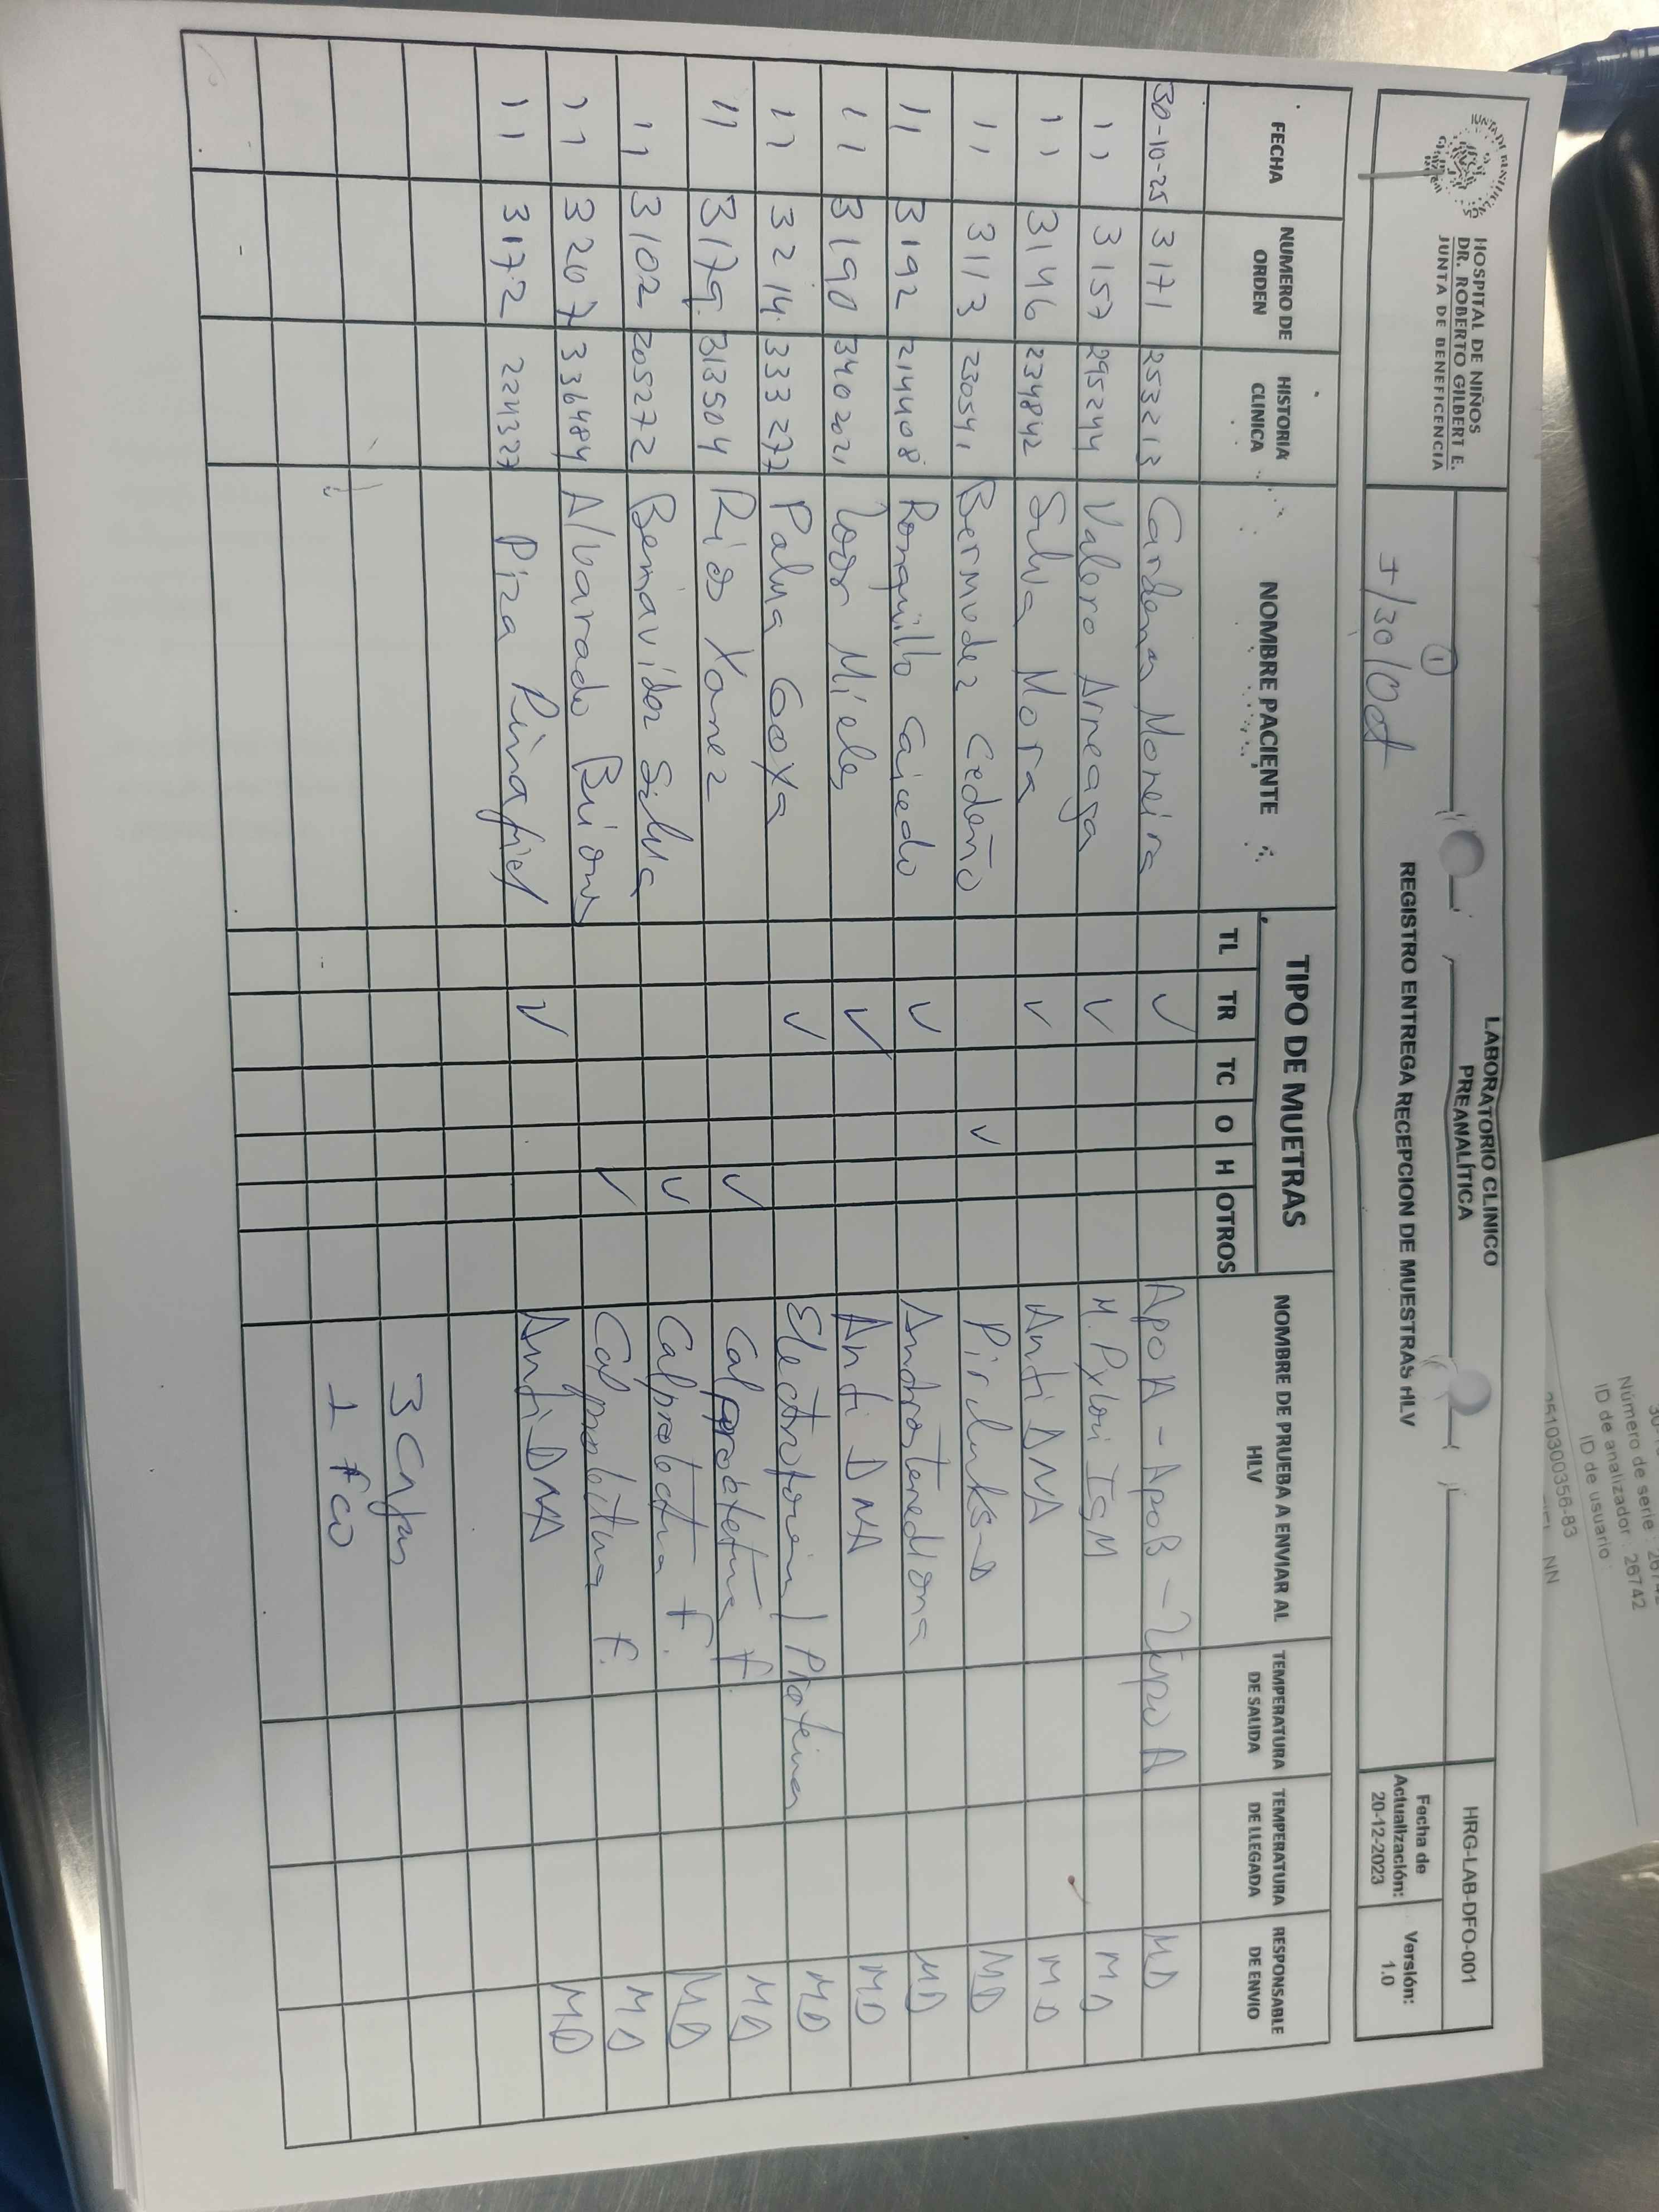 HOSPITAL DE NIÑOS
DR. ROBERTO GILBERT E.
JUNTA DE BENEFICENCIA
LABORATORIO CLINICO
PREANALÍTICA
HRG-LAB-DFO-001
1
J/30/Oct
REGISTRO ENTREGA RECEPCION DE MUESTRAS HLV
Fecha de Actualización: 20-12-2023
Versión: 1.0
FECHA NUMERO DE ORDEN HISTORIA CLINICA NOMBRE PACIENTE TIPO DE MUETRAS NOMBRE DE PRUEBA A ENVIAR AL HLV TEMPERATURA DE SALIDA TEMPERATURA DE LLEGADA RESPONSABLE DE ENVIO
TL TR TC O H OTROS
30-10-25 3171 253213 Cardenas Moreira ✓ Apo A - Apo B - Lipo A MD
11 3157 295244 Valero Arreaga ✓ H. Pylori IgM MD
11 3146 234842 Silva Mora ✓ Anti DNA MD
11 3113 230541 Bermudez Cedeño ✓ MD
11 3192 214408 Ronquillo Caicedo ✓ Androstenediona MD
11 3190 340202 Loor Mieles ✓ Anti DNA MD
11 3214 333277 Palma Goya ✓ Electroforesis / Proteinas MD
11 3179 313504 Rios Yanez ✓ Calprotectina F MD
11 3102 205272 Benavides Silva ✓ Calprotectina F. MD
11 3207 336484 Alvarado Briones ✓ Calprotectina F. MD
11 3172 224327 Piza Pinafiel ✓ Anti DNA MD
3 Cajas
1 fco
Número de serie: 26742
ID de analizador: 26742
ID de usuario
2510300356-83
NN